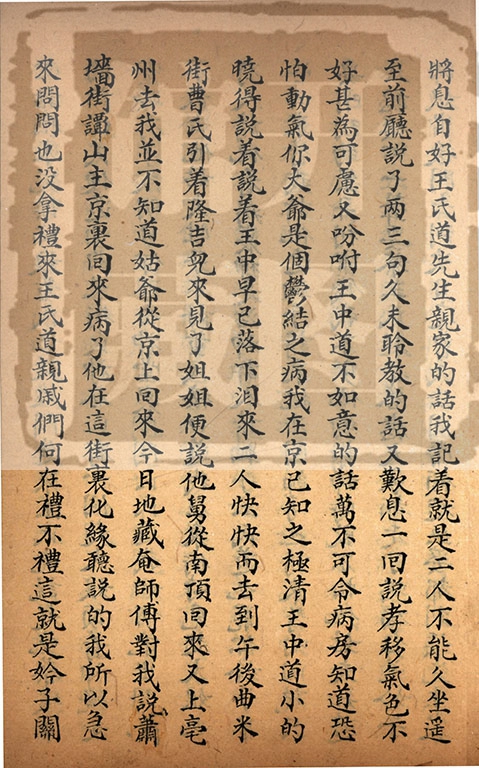 將息自好王氏道先生親家的話我記着就是二人不能久坐遥
至前廳説了両三句久未聆教的話又歎息一回説孝移氣色不
好甚為可慮又吩咐王中道不如意的話萬不可令病房知道恐
怕動氣你大爺是個鬱結之病我在京已知之極清王中道小的
曉得説着説着王中早已落下泪来二人怏怏而去到午後曲米
街曹氏引着隆吉兒來見了姐姐便説他舅從南頂回來又上亳
州去我並不知道姑爺從京上回來今日地藏庵師傅對我説蕭
墻街譚山主京裏回來病了他在這街裏化緣聽説的我所以急
來問問也没拿禮來王氏道親戚們何在禮不禮這就是妗子關